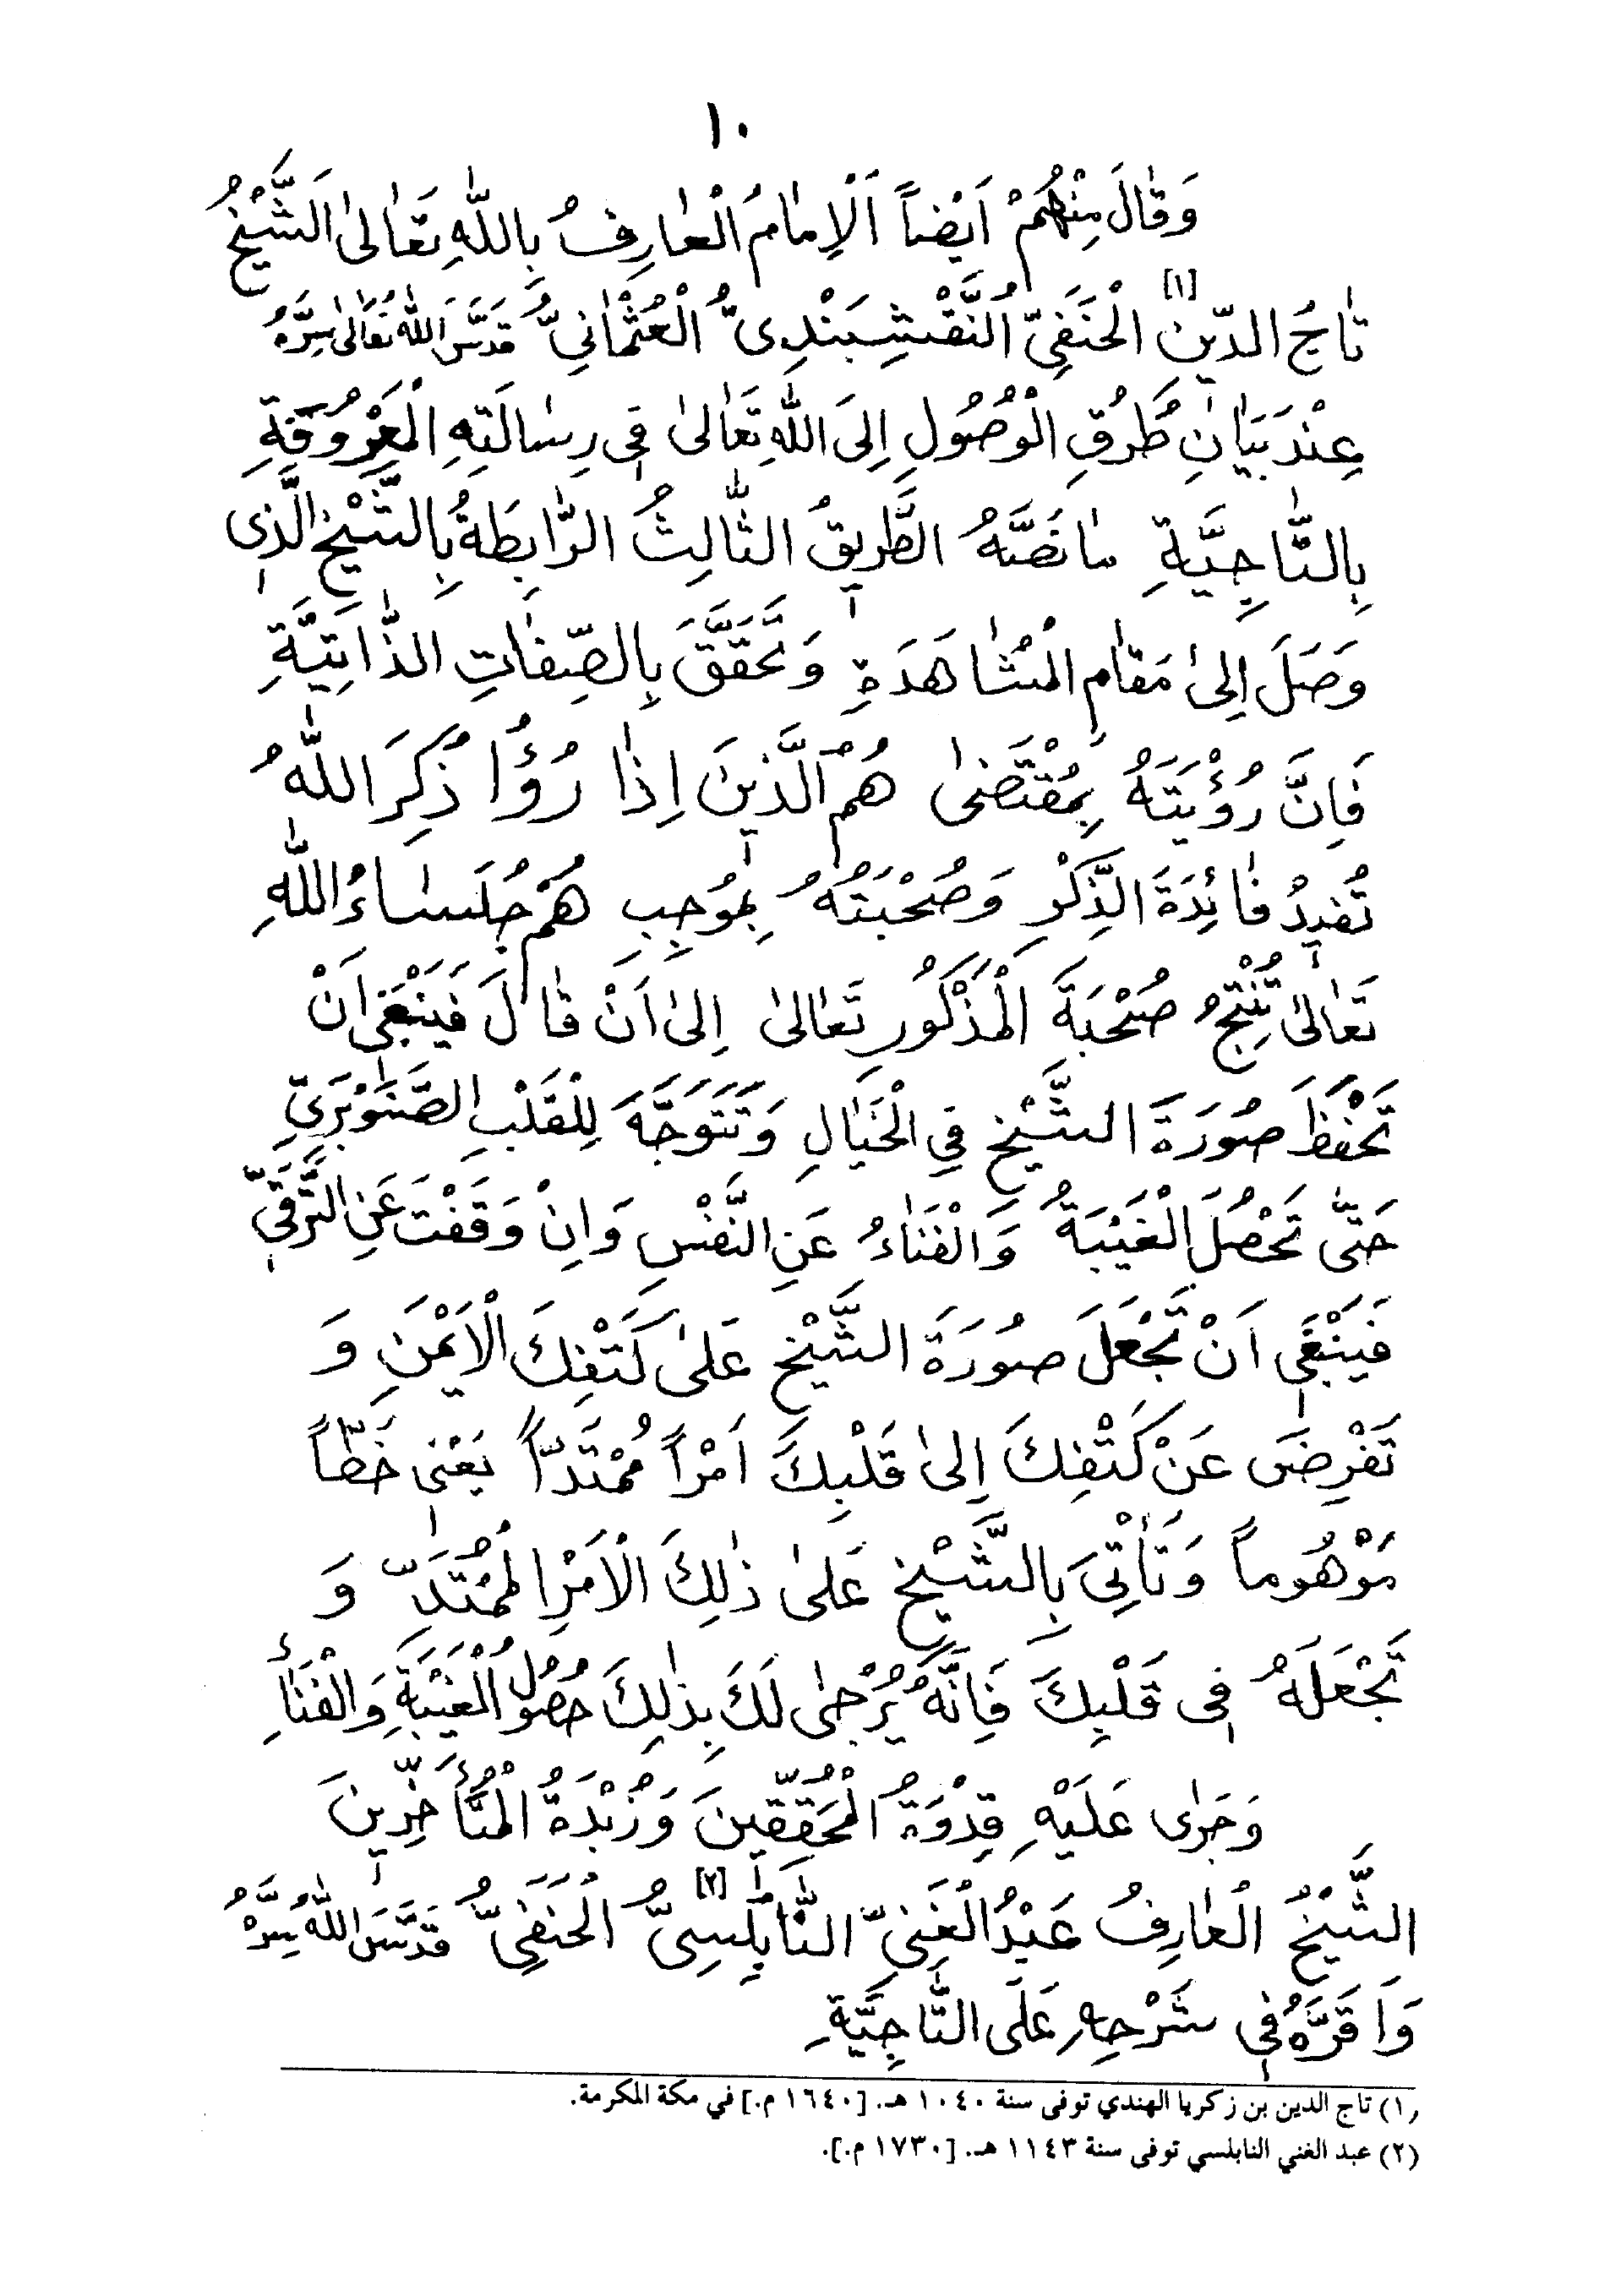 ١٠
وَقٰالَ مِنْهُمْ اَيْضاً اَلْاِمٰامُ الْعٰارِفُ بِاللّٰهِ تَعٰالىٰ اَلشَّيْخُ
تٰاجُ الدّٖينِ [١] الْحَنَفِيّ النَّقْشِبَنْدِىُّ الْعُثْمٰانِيُّ قَدَّسَ اللّٰهُ تَعٰالىٰ سِرَّهُ
عِنْدَ بَيٰانِ طُرُقِ الْوُصُولِ اِلَى اللّٰهِ تَعٰالىٰ فٖى رِسٰالَتِهِ الْمَعْرُوفَةِ
بِالتّٰاجِيَّةِ مٰا نَصُّهُ الطَّرٖيقُ الثّٰالِثُ الرّٰابِطَةُ بِالشَّيْخِ الَّذٖى
وَصَلَ اِلىٰ مَقٰامِ الْمُشٰاهَدَةِ وَتَحَقَّقَ بِالصِّفٰاتِ الذّٰاتِيَّةِ
فَاِنَّ رُؤْيَتَهُ بِمُقْتَضىٰ هُمُ الَّذٖينَ اِذٰا رُؤُا ذُكِرَ اللّٰهُ
تُفٖيدُ فٰائِدَةَ الذِّكْرِ وَصُحْبَتُهُ بِمُوجِبِ هُمْ جُلَسٰاءُ اللّٰهِ
تَعٰالىٰ تُنْتِجُ صُحْبَةَ الْمَذْكُورِ تَعٰالىٰ اِلىٰ اَنْ قٰالَ فَيَنْبَغٖى اَنْ
تَحْفَظَ صُورَةَ الشَّيْخِ فِي الْخَيٰالِ وَتَتَوَجَّهَ لِلْقَلْبِ الصَّنَوْبَرِيِّ
حَتّٰى تَحْصُلَ الْغَيْبَةُ وَالْفَنٰاءُ عَنِ النَّفْسِ وَاِنْ وَقَفْتَ عَنِ التَّرَقّٖى
فَيَنْبَغٖى اَنْ تَجْعَلَ صُورَةَ الشَّيْخِ عَلىٰ كَتْفِكَ الْاَيْمَنِ وَ
تَفْرِضَ عَنْ كَتْفِكَ اِلىٰ قَلْبِكَ اَمْراً مُمْتَدّاً يَعْنٖى خَطّاً
مَوْهُوماً وَتَأْتِىَ بِالشَّيْخِ عَلىٰ ذٰلِكَ الْاَمْرِ الْمُمْتَدِّ وَ
تَجْعَلَهُ فٖى قَلْبِكَ فَاِنَّهُ يُرْجىٰ لَكَ بِذٰلِكَ حُصُولُ الْغَيْبَةِ وَالْفَنٰاءِ
وَجَرٰى عَلَيْهِ قِدْوَةُ الْمُحَقِّقٖينَ وَزُبْدَةُ الْمُتَأَخِّرٖينَ
الشَّيْخُ الْعٰارِفُ عَبْدُ الْغَنِيّ [٢] النّٰابُلُسِىُّ الْحَنَفِىُّ قَدَّسَ اللّٰهُ سِرَّهُ
وَاَقَرَّهُ فٖى شَرْحِهِ عَلَى التّٰاجِيَّةِ
(١) تاج الدين بن زكريا الهندي توفى سنة ١٠٤٠ هـ. [١٦٤٠ م.] في مكة المكرمة.
(٢) عبد الغني النابلسي توفى سنة ١١٤٣ هـ. [١٧٣٠ م.].